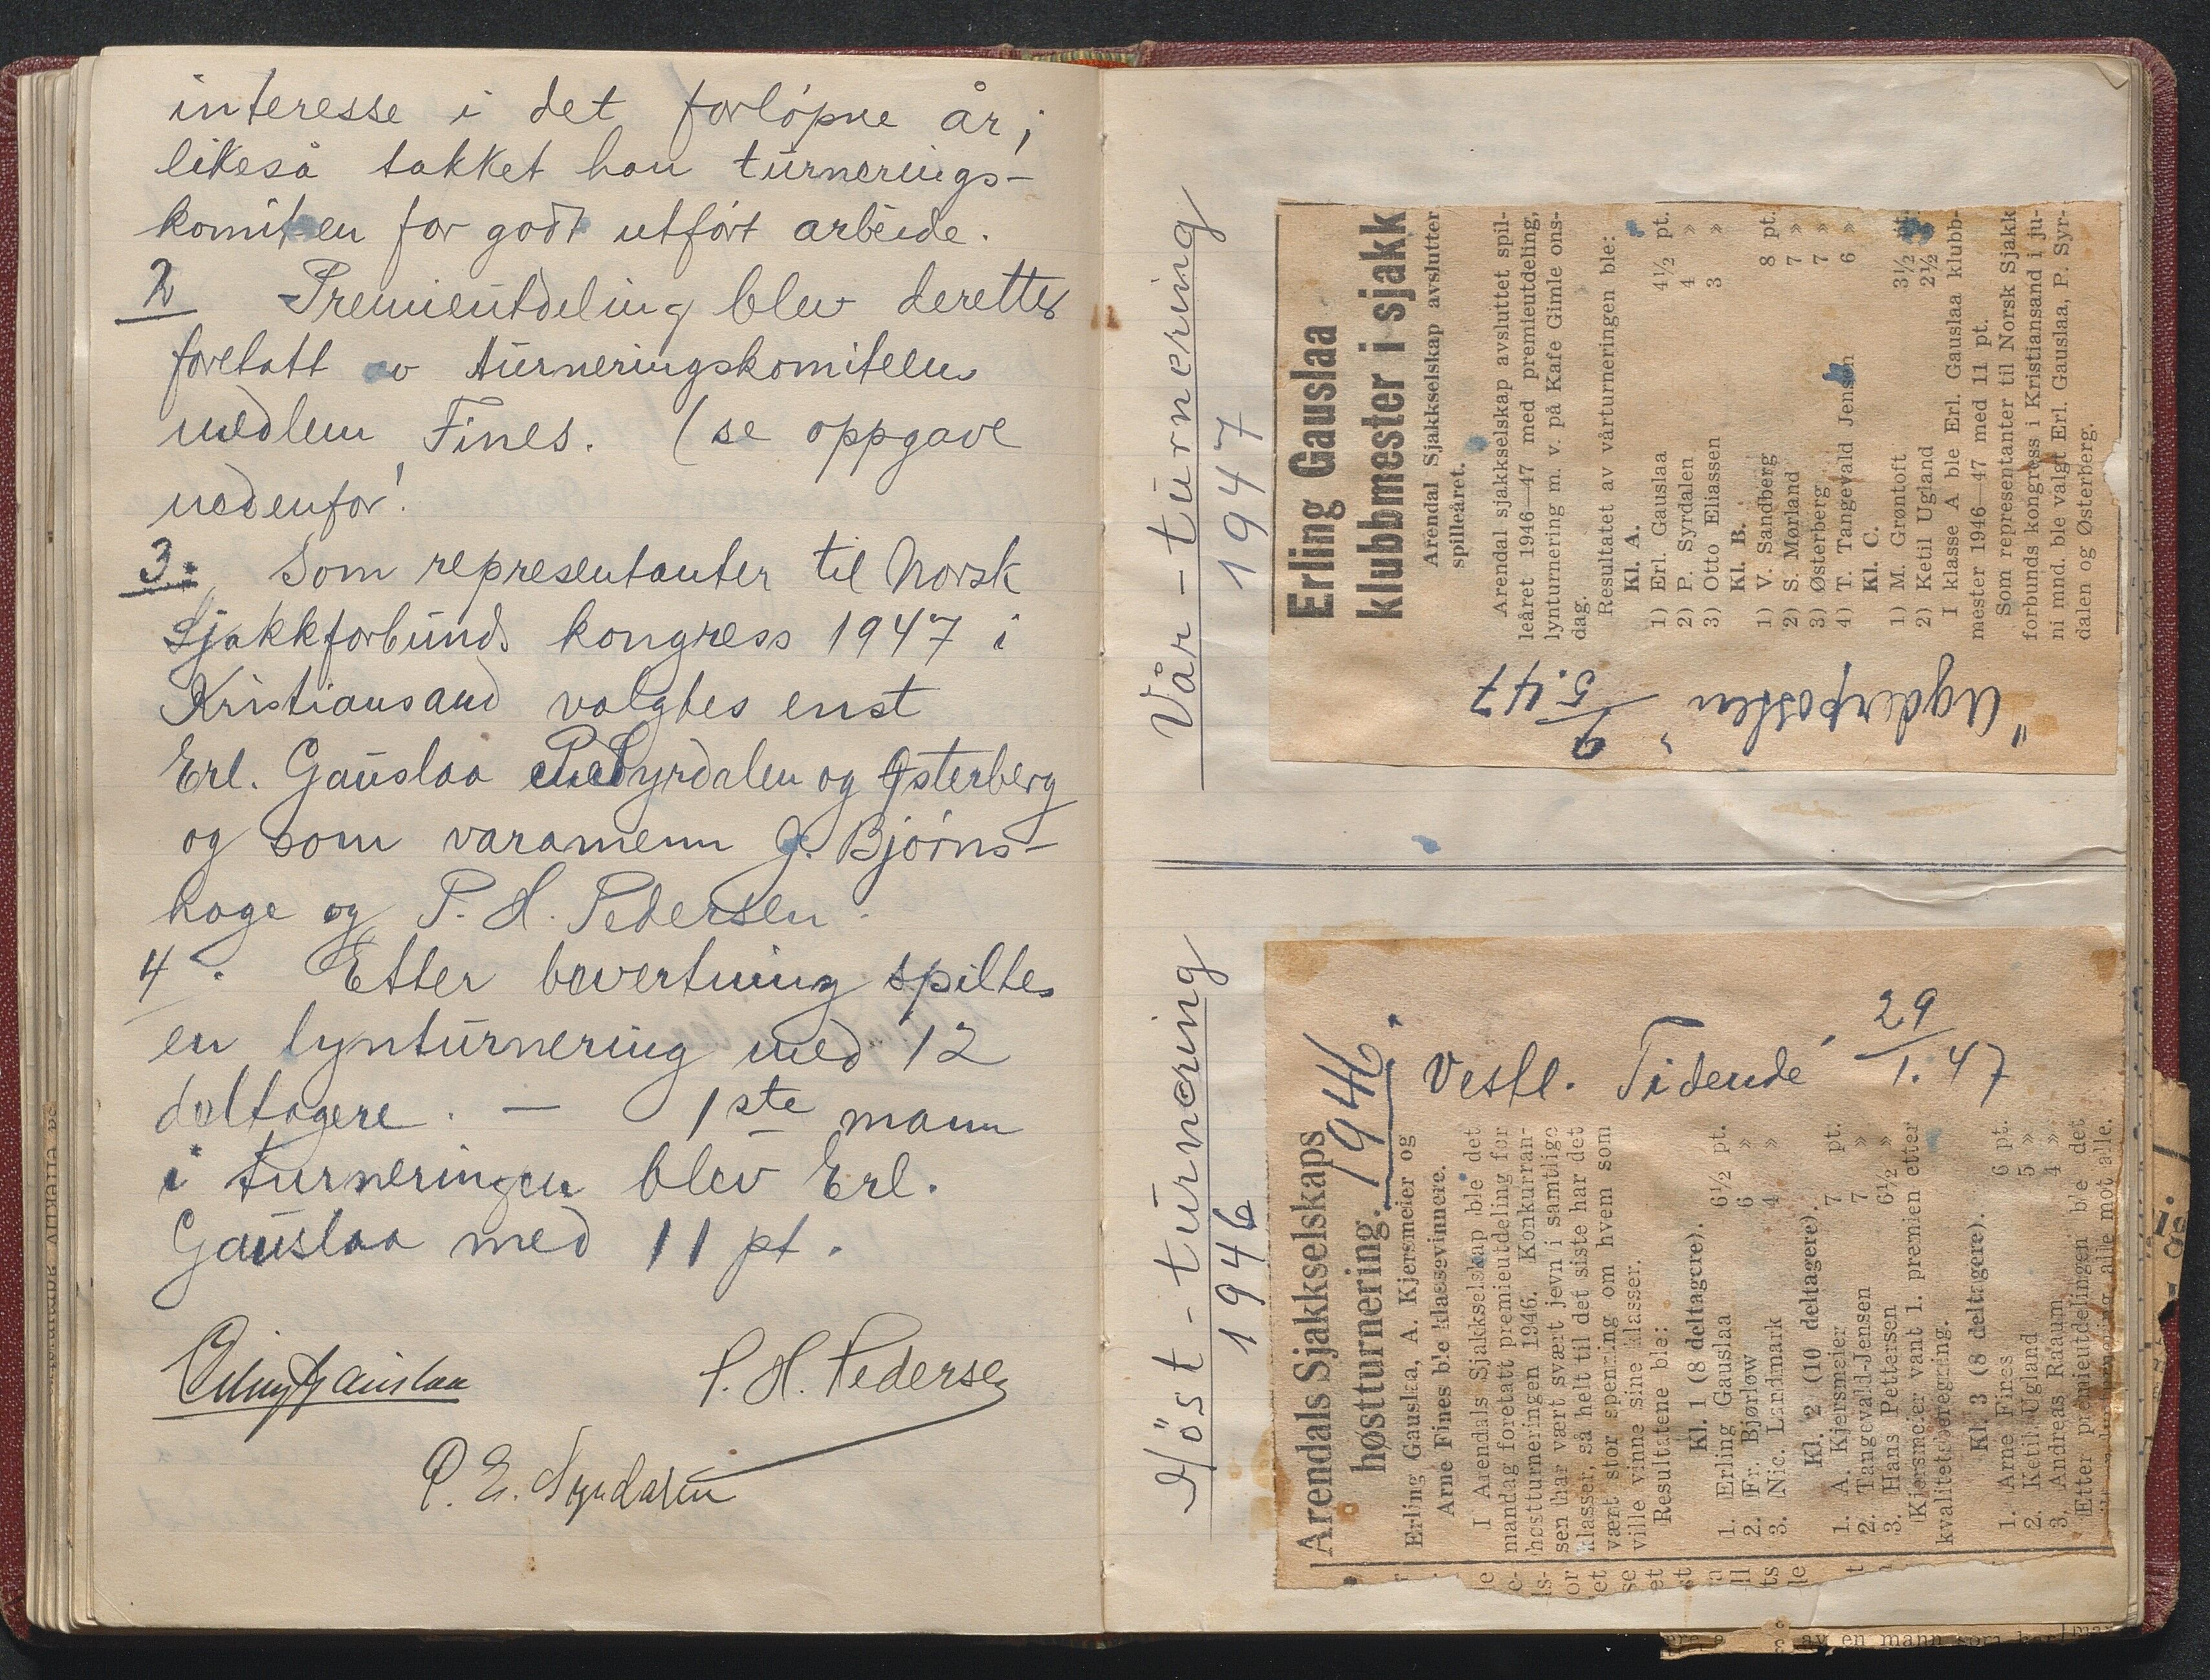 interesse i det forløpne år,
likeså takket han turnerings-
komiteen for godt utført arbeide.
2 Premieutdeling blev derettes
foretatt av turneringskomiteens
medlem Fines. (se oppgave
nedenfor!
3. Som representanter til Norsk
Sjakkforbunds kongress 1947 i
Kristiansand valgtes enst
Erl. Gauslaa Syrdalen og Østerberg
og som varamenn J. Bjørns-
hage og P. H. Pedersen.
4. Etter bevertning spiltes
en lynturnering med 12
deltagere. — 1ste mann
i turneringen blev Erl.
Gauslaa med 11 pt.
Erling Gauslaa P. H. Pedersen
P. E. Syrdalen
Vår-turnering
1947
Erling Gauslaa
klubbmester i sjakk
Arendal Sjakkselskap avslutter
spilleåret.
Arendal sjakkselskap avsluttet spil-
leåret 1946—47 med premieutdeling,
lynturnering m. v. på Kafe Gimle ons-
dag.
Resultatet av vårturneringen ble:
Kl. A.
1) Erl. Gauslaa 4½ pt.
2) P. Syrdalen 4 »
3) Otto Eliassen 3 »
Kl. B.
1) V. Sandberg 8 pt.
2) S. Mørland 7 »
3) Østerberg 7 »
4) T. Tangevald Jensen 6 »
Kl. C.
1) M. Grøntoft 3½ pt.
2) Ketil Ugland 2½
I klasse A ble Erl. Gauslaa klubb-
mester 1946—47 med 11 pt.
Som representanter til Norsk Sjakk
forbunds kongress i Kristiansand i ju-
ni mnd. ble valgt Erl. Gauslaa, P. Syr-
dalen og Østerberg.
"Agderposten"
9/5.47
Høst-turnering
1946
Arendals Sjakkselskaps
høstturnering. 1946.
Vestl. Tidende 29/1.47
Erling Gauslaa, A. Kjersmeier og
Arne Fines ble klassevinnere.
I Arendals Sjakkselskap ble det
mandag foretatt premieutdeling for
høstturneringen 1946. Konkurran-
sen har vært svært jevn i samtlige
klasser, så helt til det siste har det
vært stor spenning om hvem som
ville vinne sine klasser.
Resultatene ble:
Kl. 1 (8 deltagere).
1. Erling Gauslaa 6½ pt.
2. Fr. Bjørløw 6 »
3. Nic. Landmark 4 »
Kl. 2 (10 deltagere).
1. A. Kjersmeier 7 pt.
2. Tangevald-Jensen 7 »
3. Hans Pettersen 6½ »
Kjersmeier vant 1. premien etter
kvalitetsberegning.
Kl. 3 (8 deltagere).
1. Arne Fines 6 pt.
2. Ketil Ugland 5 »
3. Andreas Raaum 4 »
Etter premieutdelingen ble det
alle mot alle.
av en mann som har